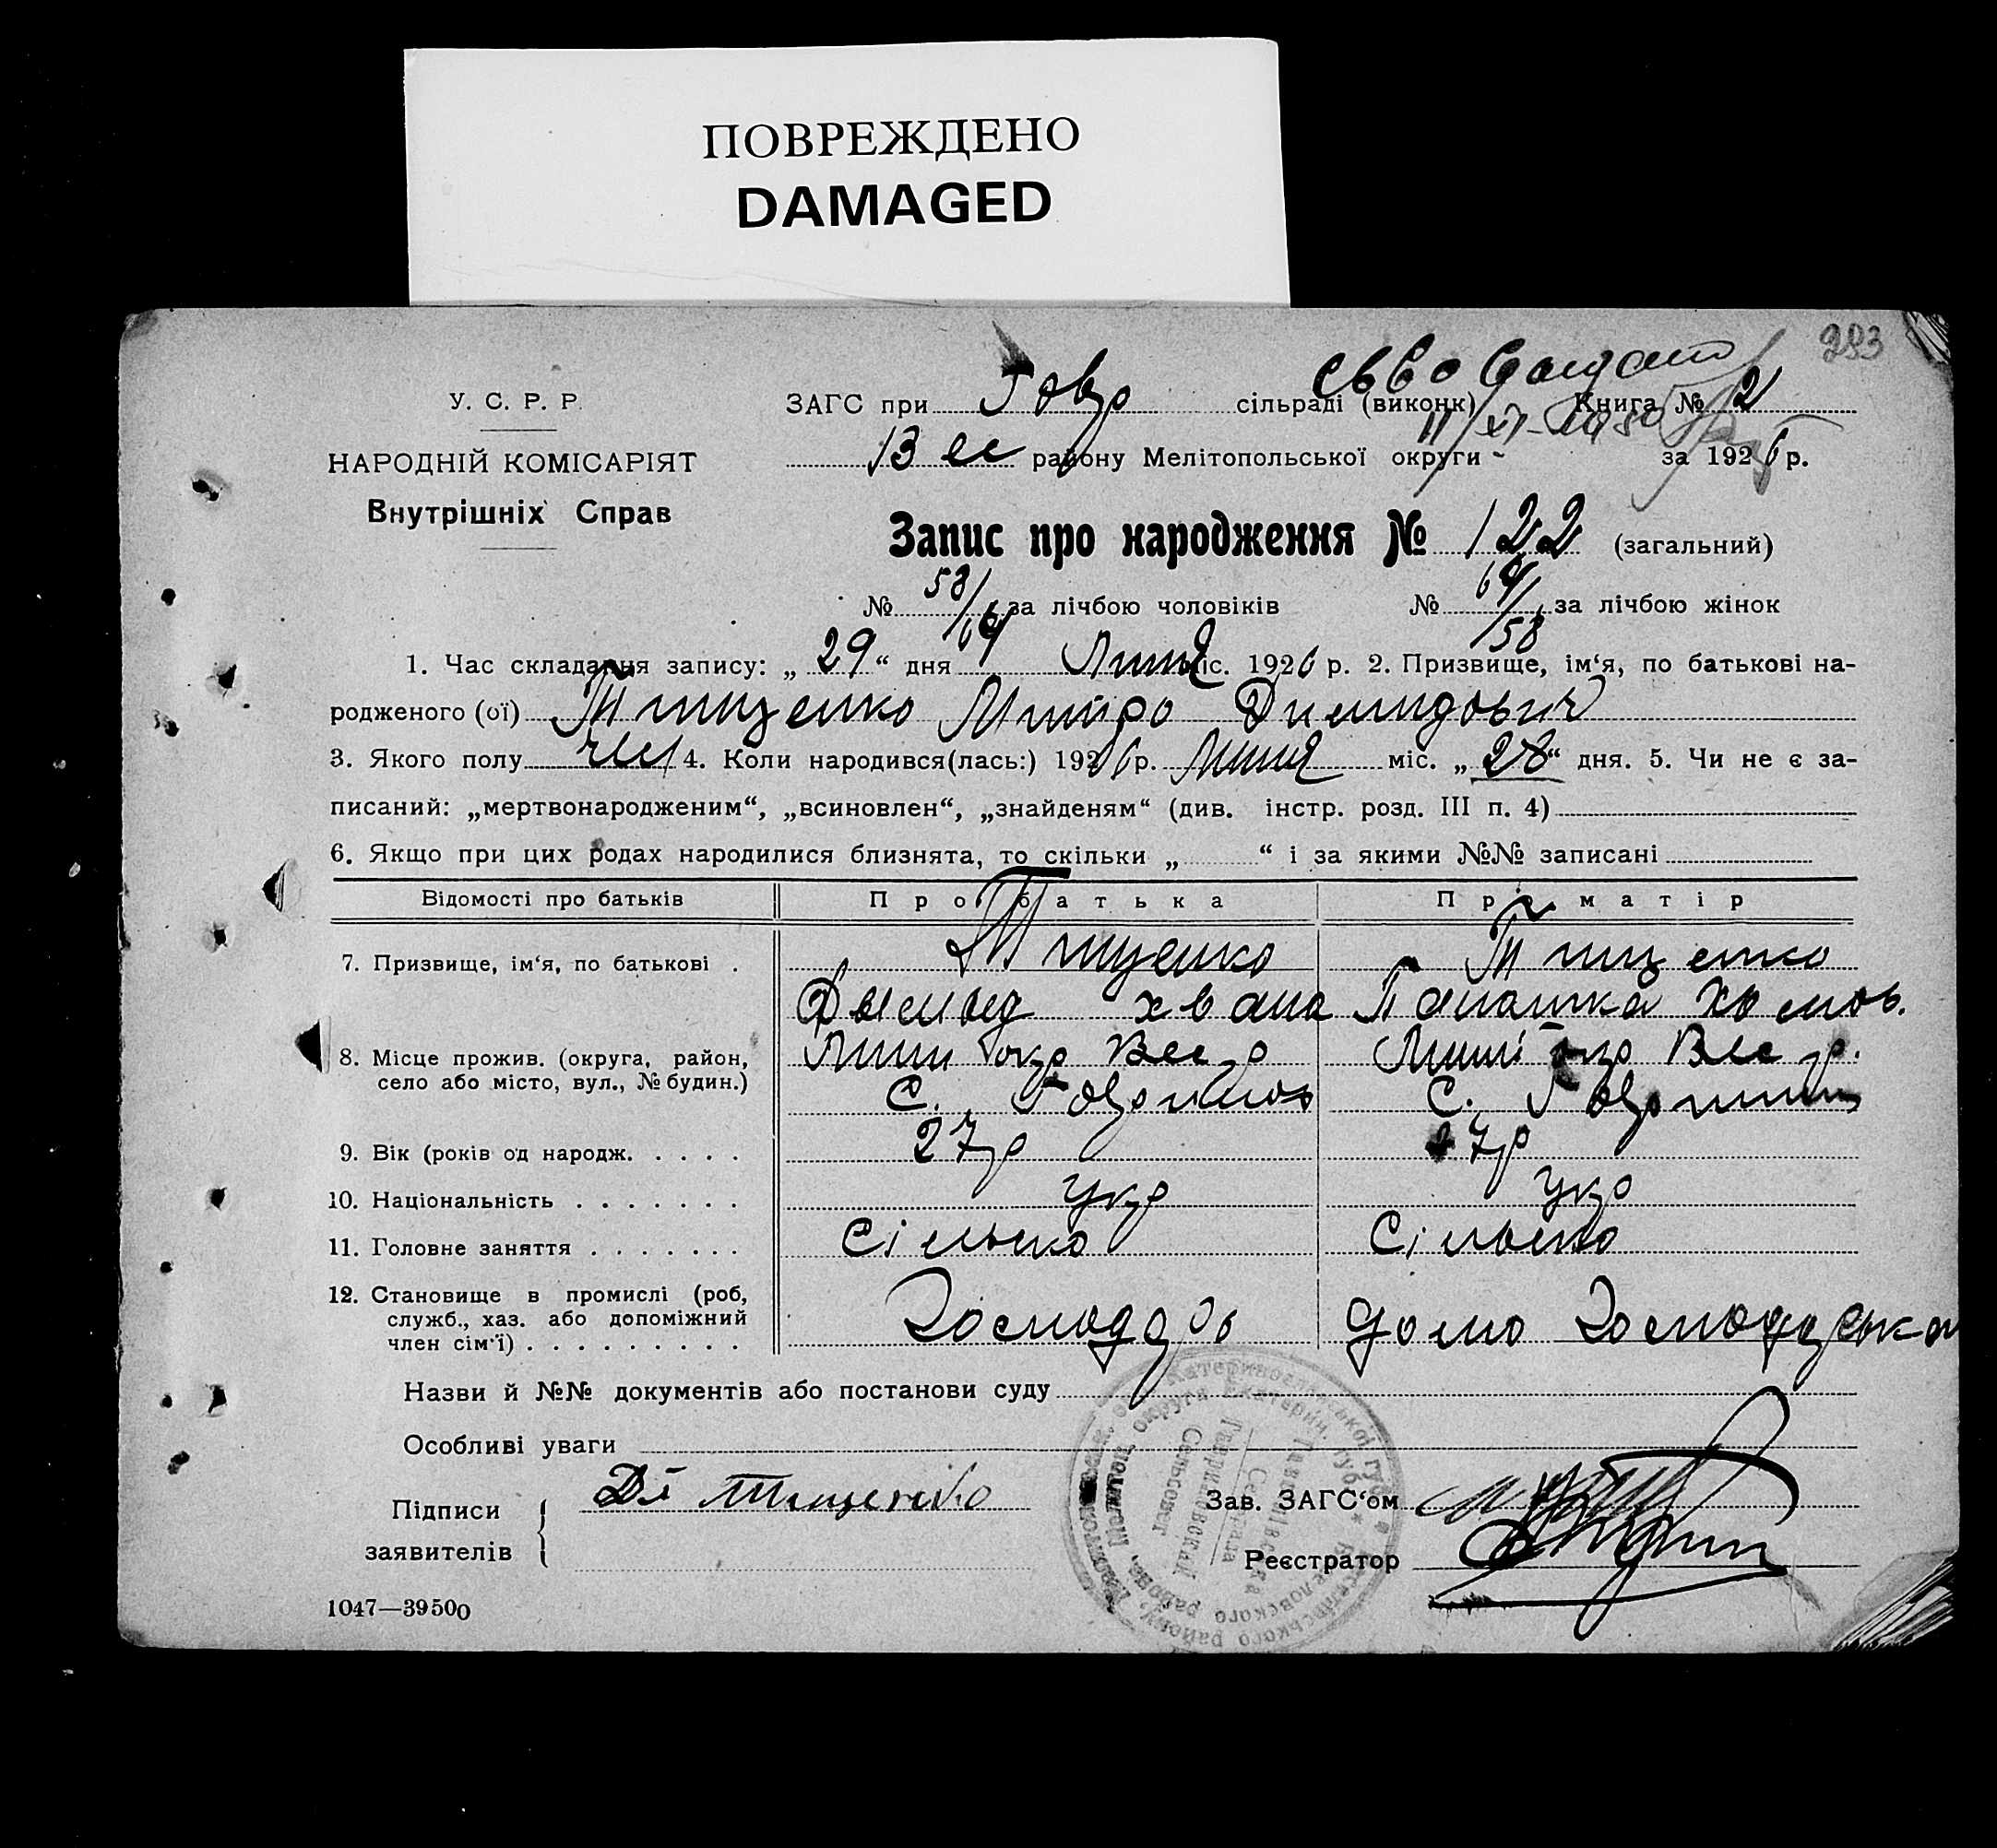 ПОВРЕЖДЕНО
DAMAGED
293
У. С. Р. Р.
НАРОДНІЙ КОМІСАРІЯТ
Внутрішніх Справ
ЗАГС при Гавр сільраді (виконк) Книга № 2
Вес району Мелітопольської округи за 1926 р.
11/XI-1950
Запис про народження № 122 (загальний)
№ 58/64 за лічбою чоловіків № 64/58 за лічбою жінок
1. Час складання запису: „ 29 “ дня Липня міс. 1926 р. 2. Призвище, ім‘я, по батькові на-
родженого (ої) Тищенко Митро Димидович
3. Якого полу чол 4. Коли народився(лась:) 1926 р. Липня міс. „ 28 “ дня. 5. Чи не є за-
писаний: „мертвонародженим“, „всиновлен“, „знайденям“ (див. інстр. розд. III п. 4)
6. Якщо при цих родах народилися близнята, то скільки „ “ і за якими №№ записані
Відомості про батьків Про батька Про матір
7. Призвище, ім‘я, по батькові . Тищенко Тищенко
Дымыд Хвана Панашка Хомов.
8. Місце прожив. (округа, район, Миги окр Вес р Миги окр Вес р.
село або місто, вул., № будин.) С. Гаврилов С. Гаврилів
9. Вік (років од народж. . . . . 27 р 27 р
10. Національність . . . . . . . укр укр
11. Головне заняття . . . . . . . Сільско Сільско
12. Становище в промислі (роб,
служб., хаз. або допоміжний Господарь домо Господарська
член сім‘ї) . . . . . . . . .
Назви й №№ документів або постанови суду
Особливі уваги
Підписи
заявителів
Ді Тищенко
Зав. ЗАГС‘ом
Реєстратор
1047—39500